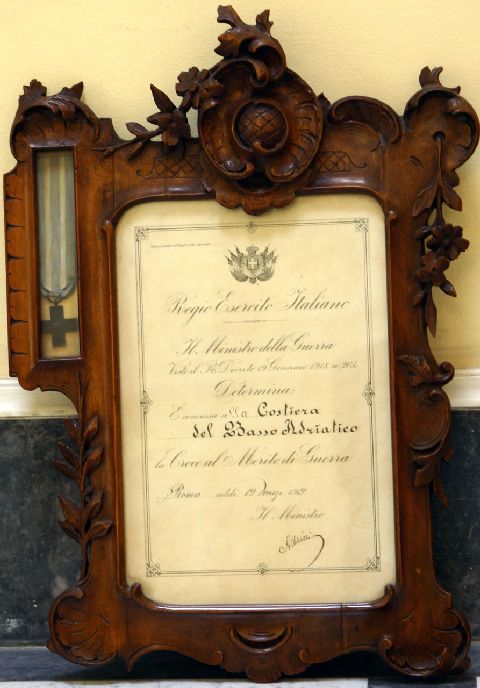 Regio Esercito Italiano
Il Ministro della Guerra
Visto il R. Decreto 19 Gennaio 1918 n. 205
Determina:
È concessa alla Costiera
del Basso Adriatico
la Croce al Merito di Guerra
Roma addì 19 Marzo 1919
Il Ministro